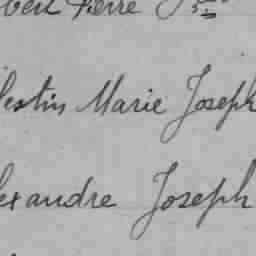 bert Pierre J
lestin Marie Joseph
lexandre Joseph